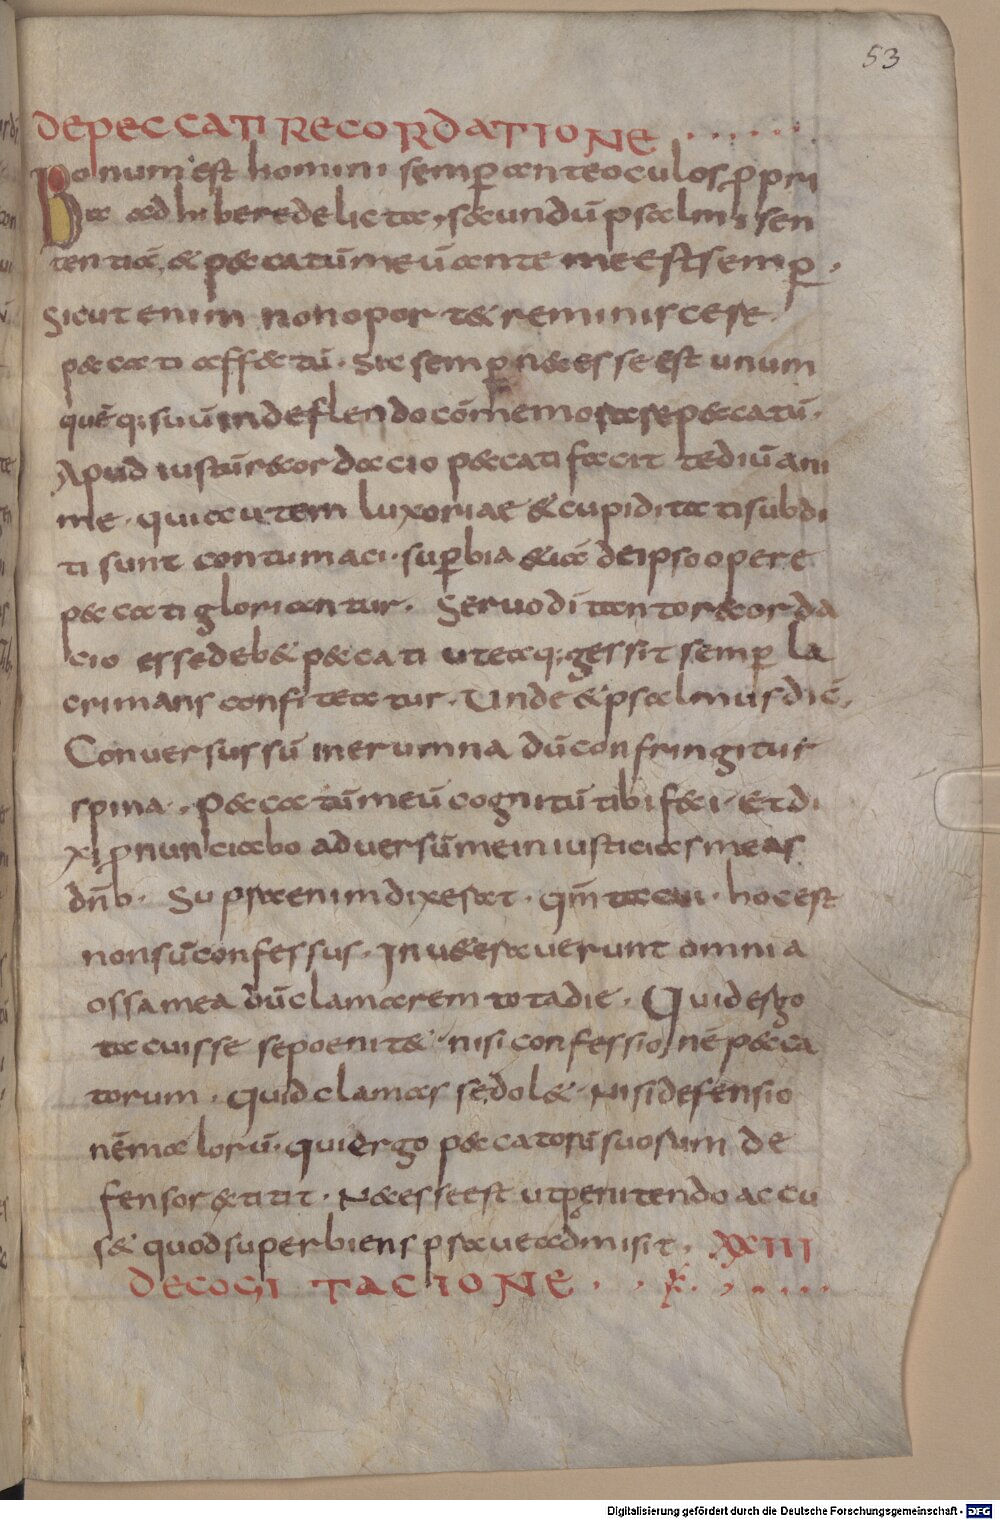 53
DE PECCATI RECORDATIONE . . . . . .
Bonum est homini semp ante oculos ppri
a adhibere delicta, secundū psalmi sen
tentiā, & peccatū meū ante me est semp.
Sicut enim non oport& reminiscere
peccati affectū. Sic semp necesse est unum
quēq; suū in deflendo cōmemorare peccatū.
Apud iustū recordacio peccati facit tediū ani
me. qui autem luxoriae & cupiditati subdi
ti sunt contumaci. supbia &iā de ipso opere
peccati gloriantur. Seruo di tantor recorda
cio esse deb& peccati ut eaq; gessit semp la
crimans confiteatur. Unde & psalmus dic̄.
Conuersus sū in erumna dū confringitur
spina. Peccatū meū cognitū tibi feci. Et di
xi pnunciabo aduersū me iniusticias meas
dn̄o. Supra enim dixerat. qm̄ tacui. hoc est
non sū confessus. Inueterauerunt omnia
ossa mea dū clamarem tota die. Quid ergo
tacuisse se poenit& nisi confessionē pecca
torum. quid clamasse dol& Nisi defensio
nēmalorū. qui ergo peccatorū suorum de
fensor extitit. Necesse est ut penitendo accu
s& quod superbiens praue admisit. XXIII
DE COGITACIONE . . . . . . .
Digitalisierung gefördert durch die Deutsche Forschungsgemeinschaft - DFG